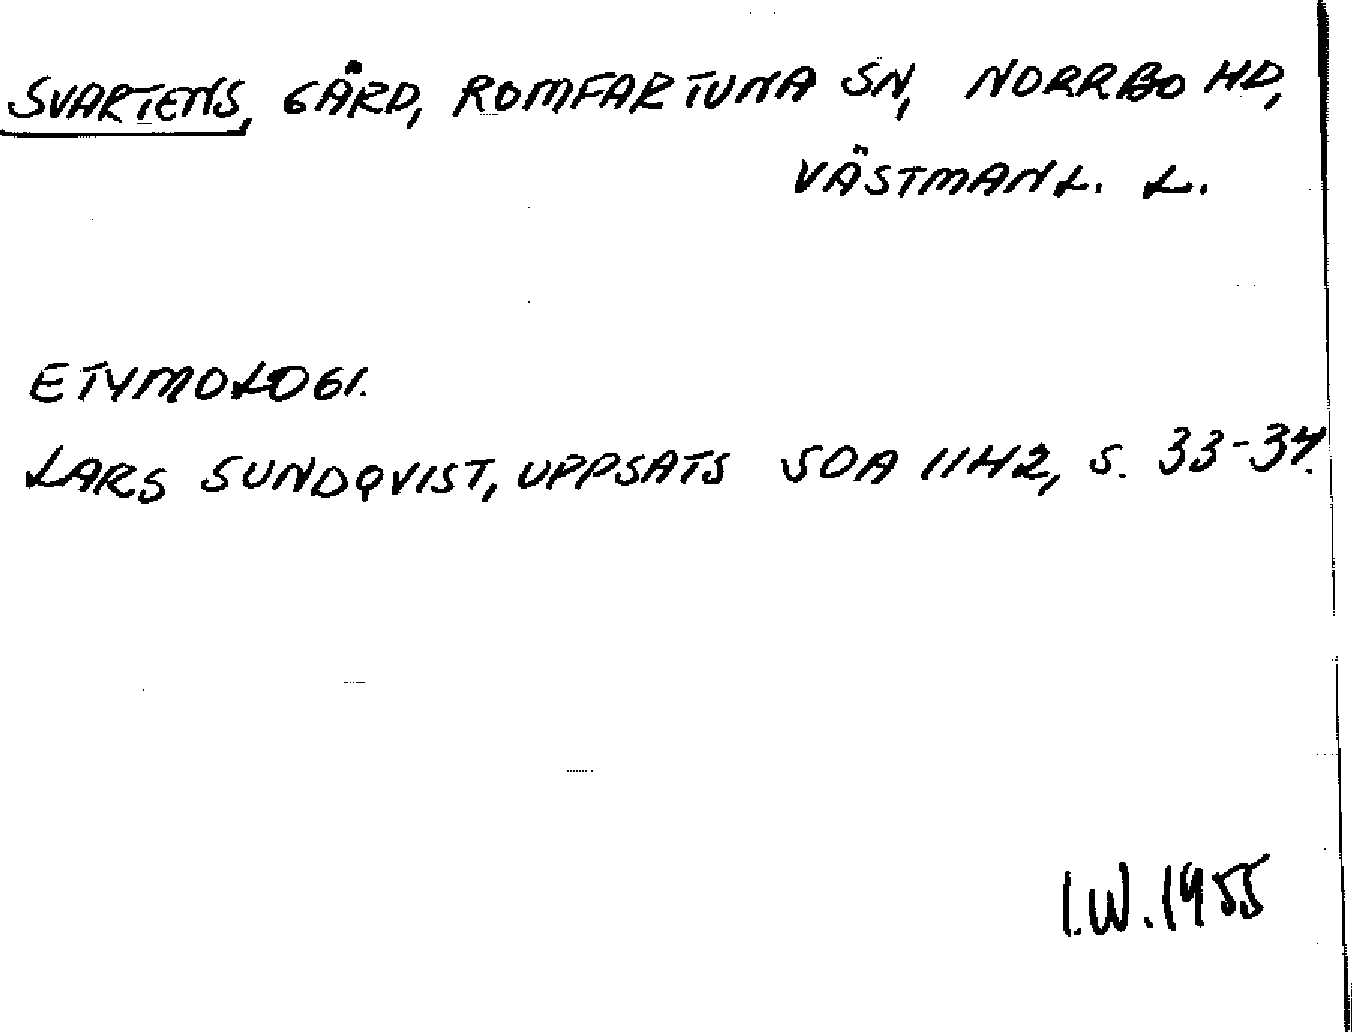 SVARTENS, GÅRD, ROMFARTUNA SN, NORRBO HD,
VÄSTMANL. L.
ETYMOLOGI.
LARS SUNDQVIST, UPPSATS SOA 1142, S. 33-34.
I.W. 1955